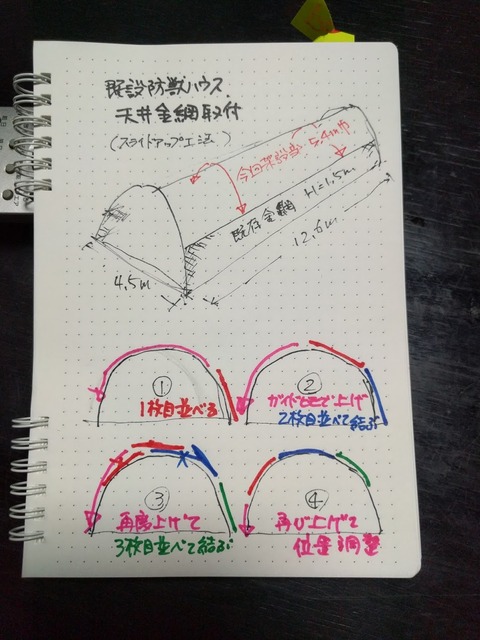 既設防獣ハウス
天井金網取付
(スライドアップ工法)
5.4m巾
既存金網 H=1.5m
12.6m
4.5m
①
1枚目並べる
②
ガイドとで上げ
2枚目並べて結ぶ
③
再度上げて
3枚目並べて結ぶ
④
再び上げて
位置調整